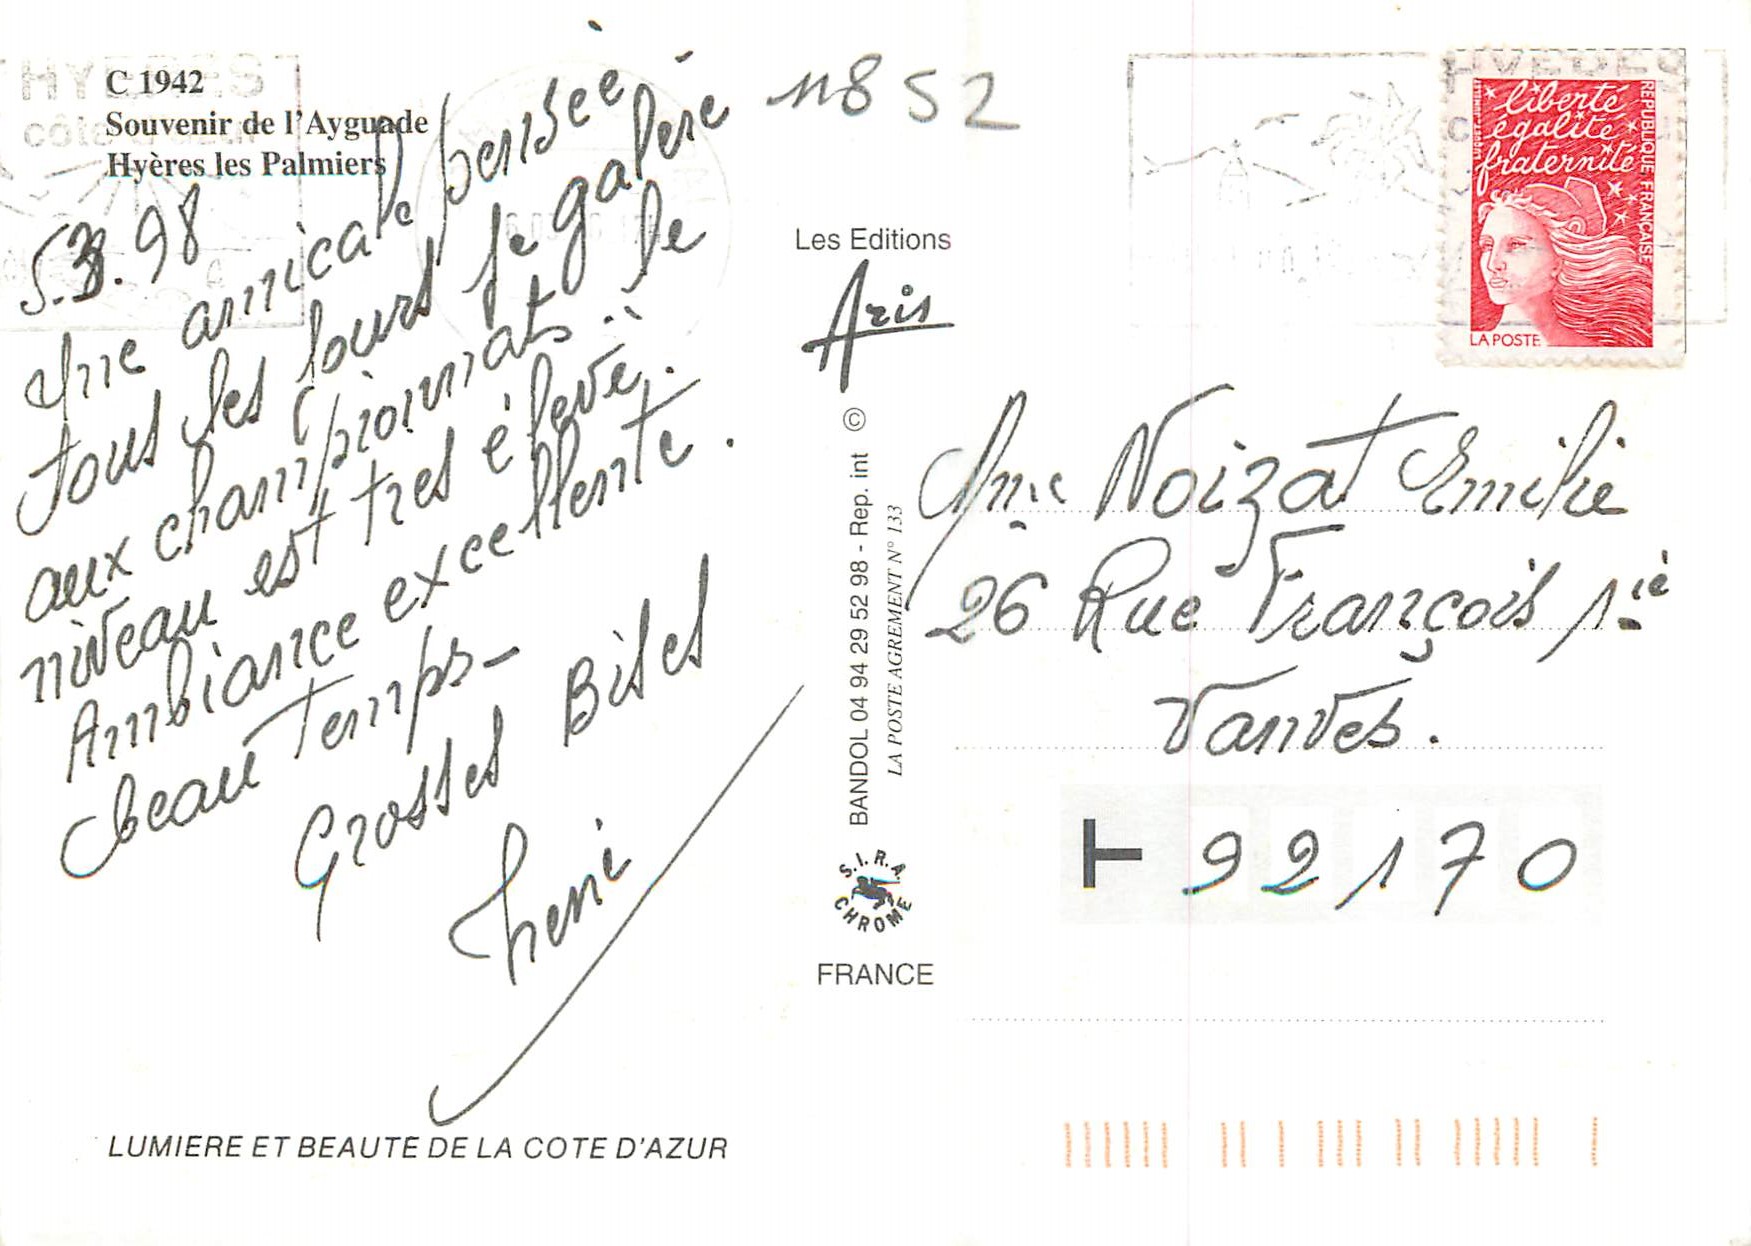 C 1942
Souvenir de l'Ayguade
Hyères les Palmiers
5.3.98
Une amicale pensée
tous les jours je galère
aux championnats .. le
niveau est très élevé.
Ambiance excellente.
beau temps -
Grosses Bises
HYERES
côte d'azur
11852
Les Editions
Aris
© BANDOL 04 94 29 52 98 - Rep. int
LA POSTE AGREMENT N° 133
S.I.R.A.
CHROME
FRANCE
liberté
égalité
fraternité
REPUBLIQUE FRANÇAISE
LA POSTE
HYERES
Mme Noizat Emilie
26 Rue François 1ié
Vanves.
92170
LUMIERE ET BEAUTE DE LA COTE D'AZUR